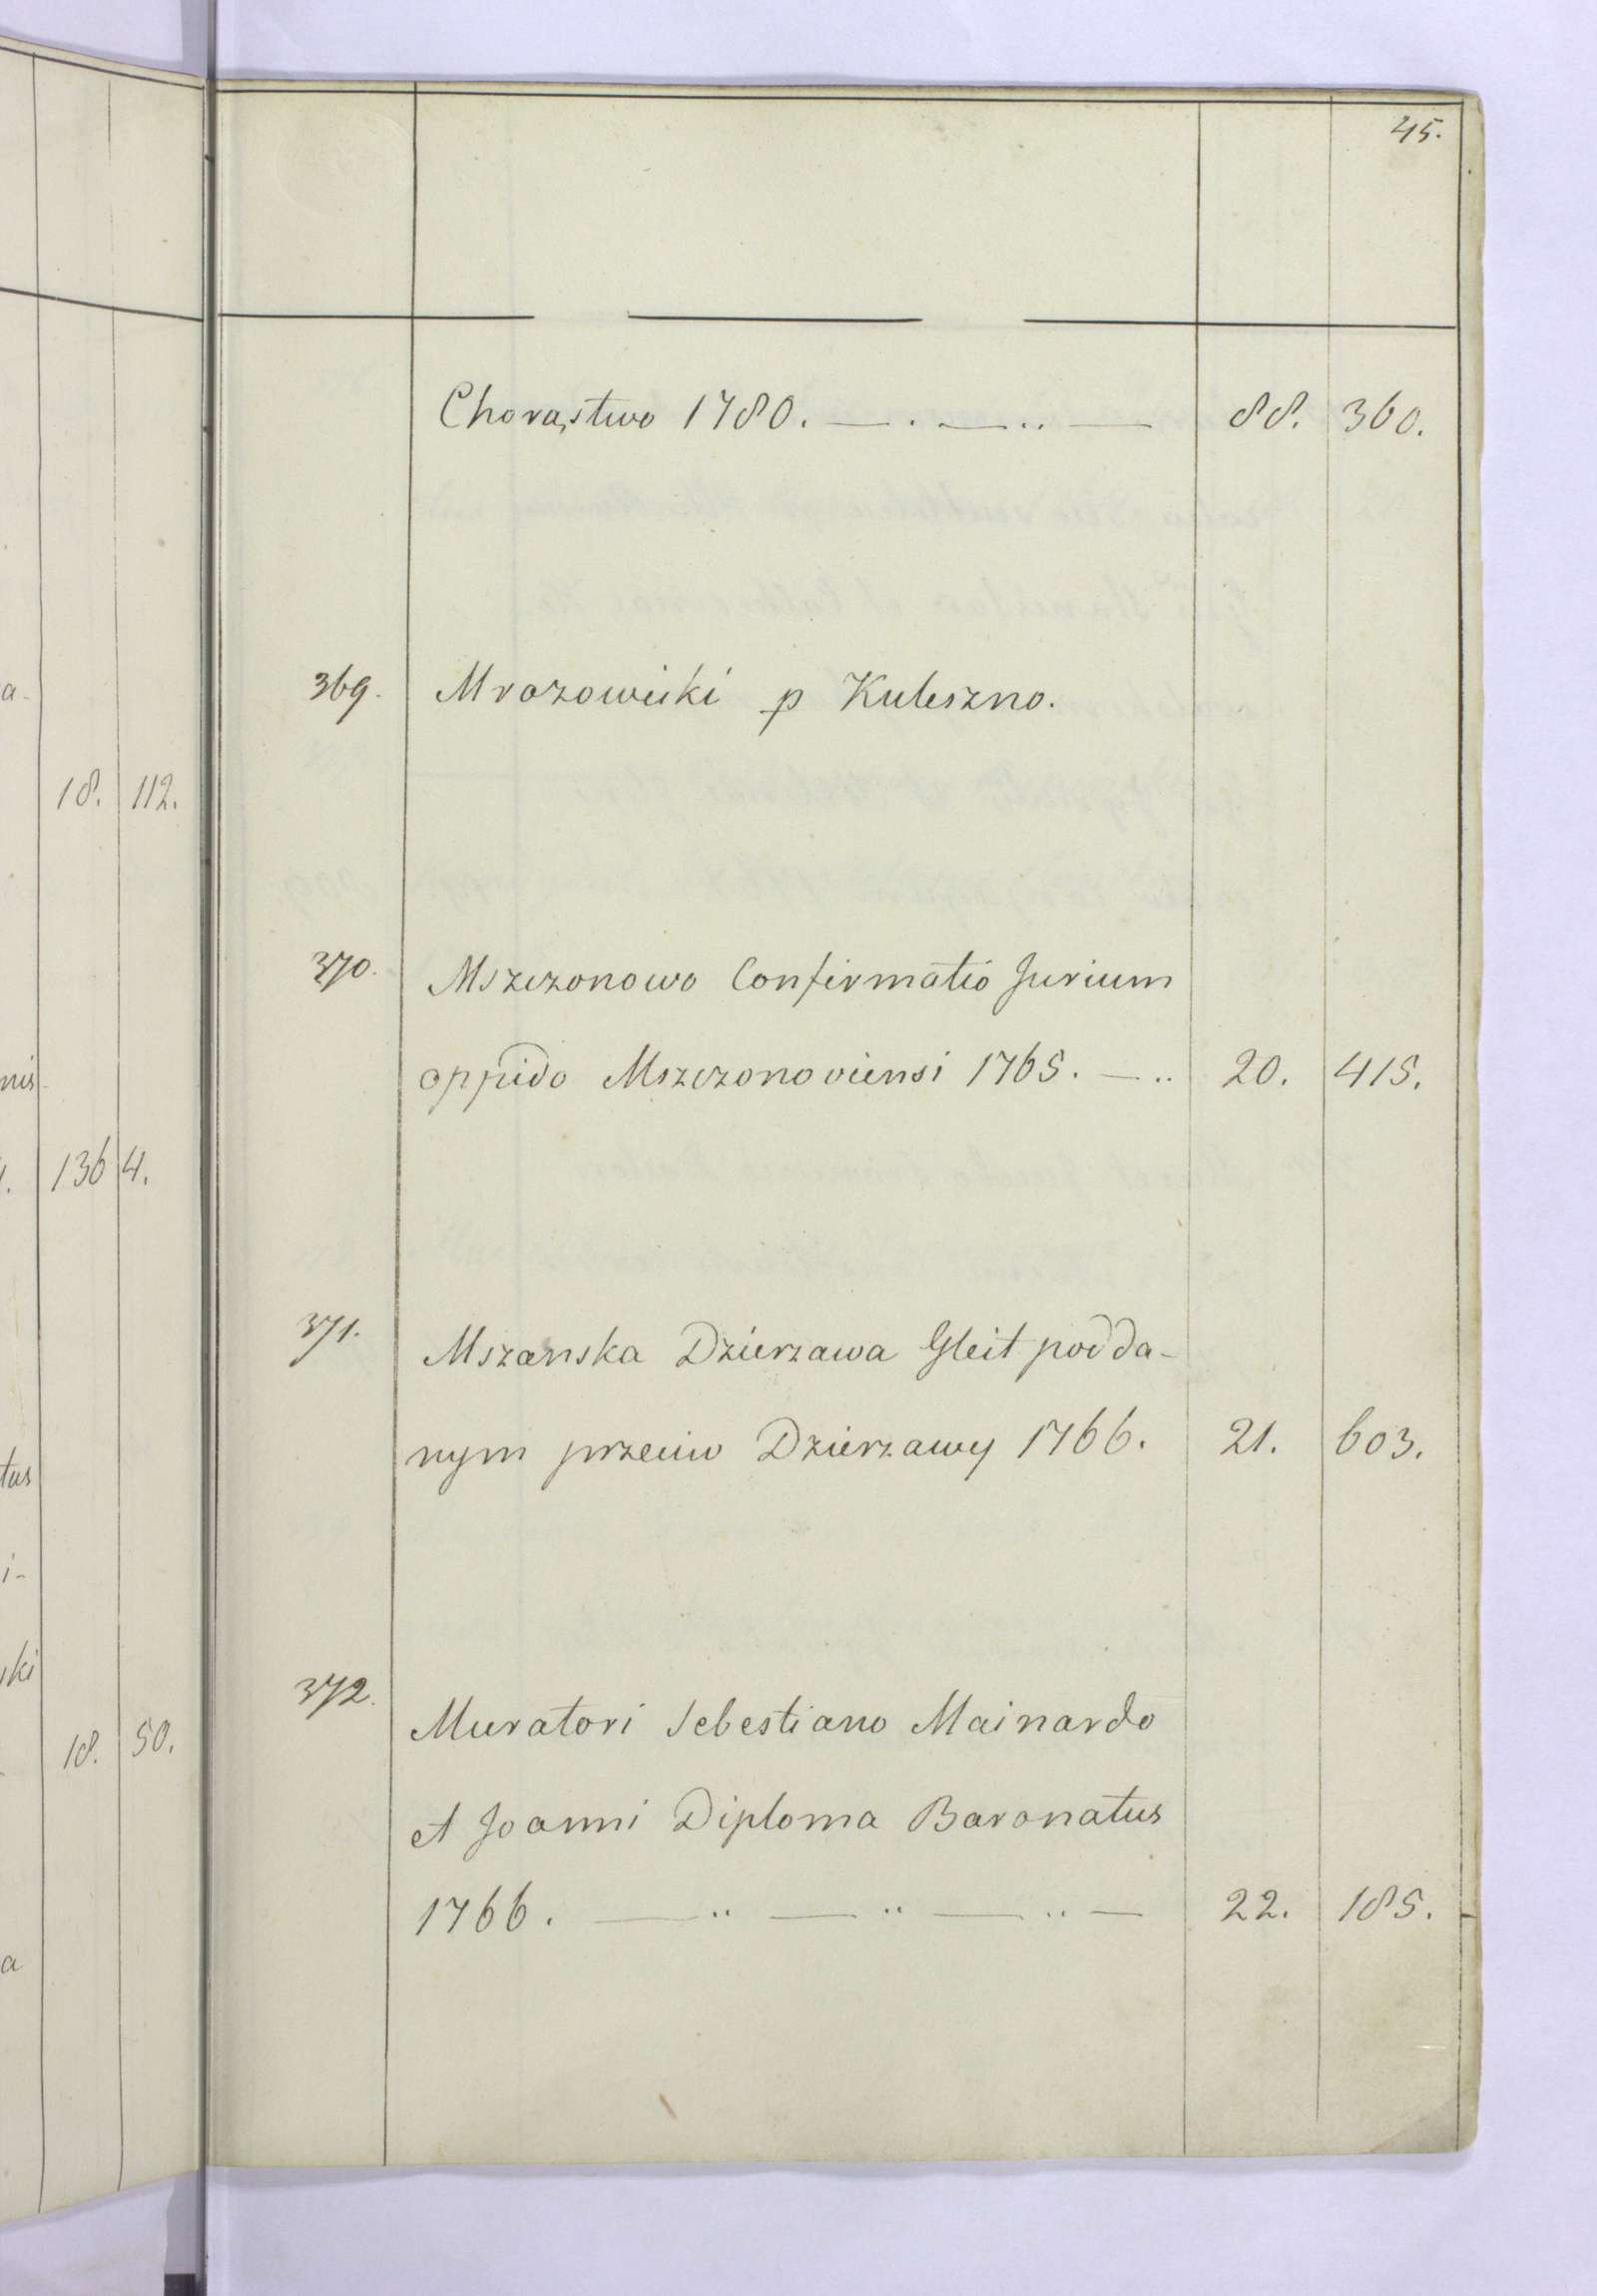 45.
Chorąstwo 1780. — . — .. — 88. 360.
369. Mrozowicki p Kuleszno.
a-
18. 112.
370. Mszczonowo Confirmatio Jurium
oppido Mszczonoviensi 1765. — .. 20. 415.
nis-
136 4.
371. Mszanska Dzierzawa Gleit podda-
nym przeciw Dzierzawy 1766. 21. 603.
tus
i-
ski
372. Muratori Sebestiano Mainardo
18. 50.
et Joanni Diploma Baronatus
1766. — .. — .. — .. — 22. 185.
a